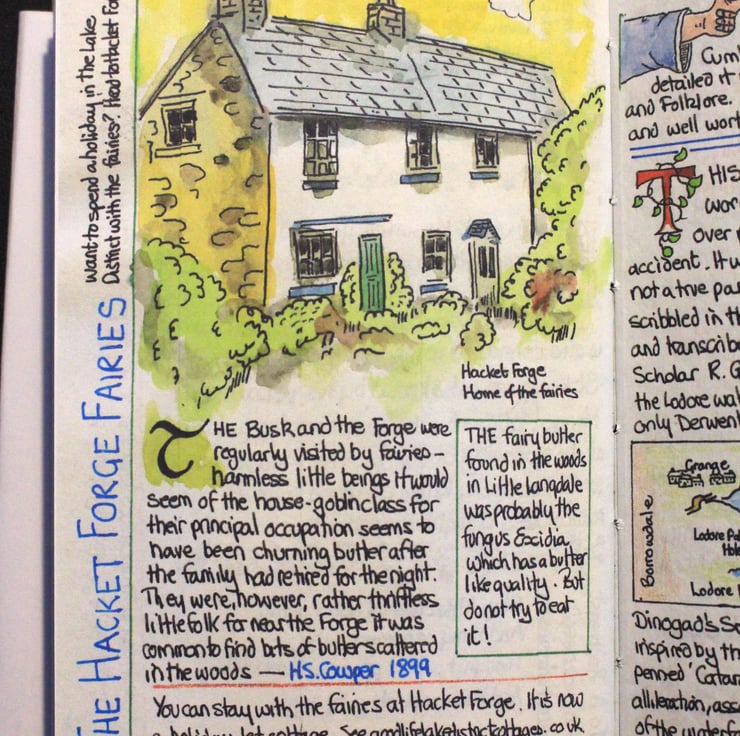 want to spend a holiday in the Lake
District with the fairies? Head to Hacket Fo
THE HACKET FORGE FAIRIES
Hacket Forge
Home of the fairies
THE Busk and the Forge were
regularly visited by fairies –
harmless little beings it would
seem of the house-goblin class for
their principal occupation seems to
have been churning butter after
the family had retired for the night.
They were, however, rather thriftless
little folk for near the Forge it was
common to find bits of butter scattered
in the woods — HS. Cowper 1899
THE fairy butter
found in the woods
in Little Langdale
was probably the
fungus Excidia,
which has a butter
like quality. But
do not try to eat
it!
You can stay with the fairies at Hacket Forge. It is now
a holiday let cottage. See
Cum
detailed it
and Folklore.
and well wort
THIS
wor
over
accident. It w
not a true pa
scribbled in th
and transcrib
Scholar R. G
the Lodore wat
only Derwent
Grange
Borrowdale
Lodore
Lodore
Dinogad's S
inspired by th
penned 'Catar
alliteration, ass
of the waterf